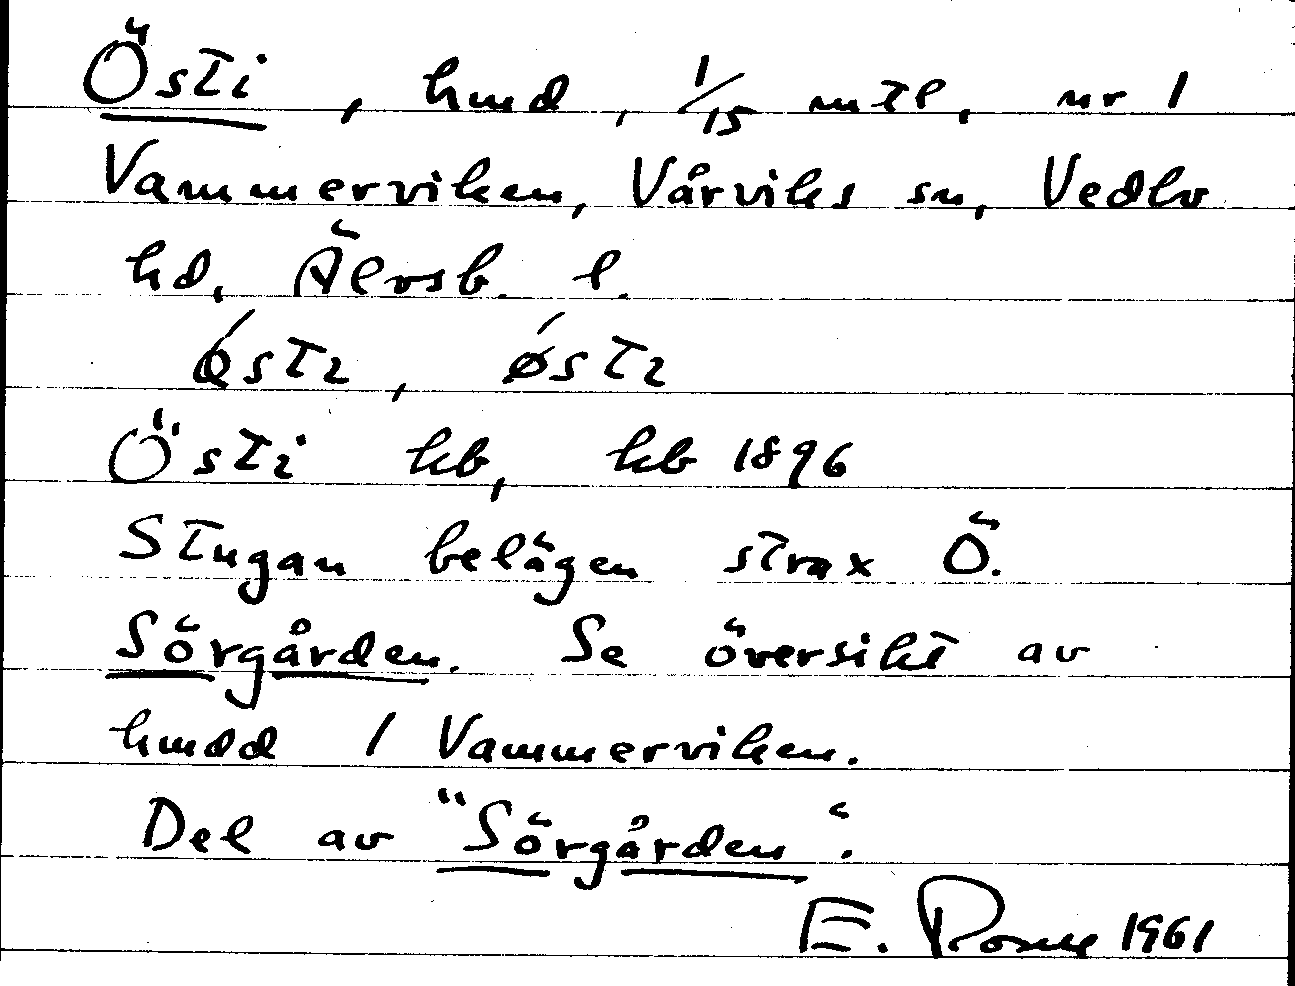 Östi, hmd, 1/15 mtl, nr 1
Vammerviken, Vårviks sn, Vedbo
hd, Älvsb. l.
Östi kb, kb 1896
Stugan belägen strax Ö.
Sörgården. Se översikt av
hmdd 1 Vammerviken.
Del av "Sörgården".
E. 1961